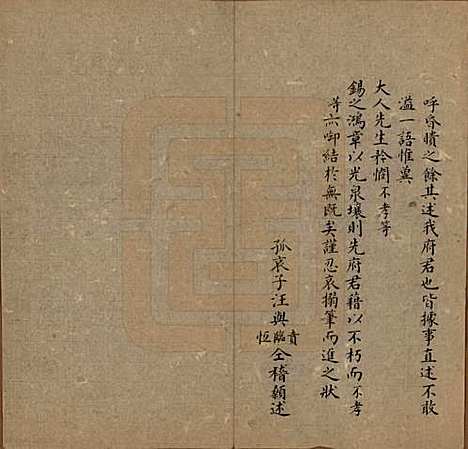 呼昏聵之餘其述我府君也皆據事直述不敢
溢一語惟冀
大人先生矜憫不孝等
錫之鴻章以光泉壤則先府君藉以不朽而不孝
等亦啣結於無既矣謹忍哀搦筆而進之狀
孤哀子汪與賁臨恆仝稽顙述